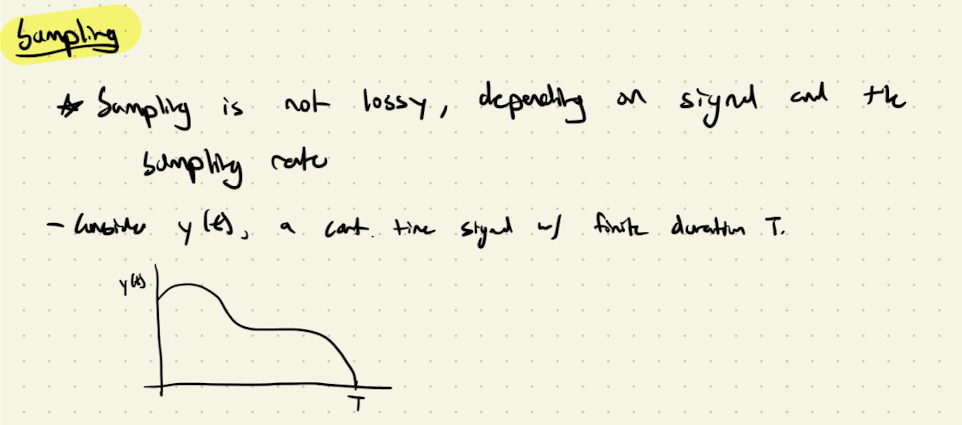 Sampling
☆ Sampling is not lossy, depending on signal and the
sampling rate
- Consider y(t), a cont. time signal w/ finite duration T.
y(t)
T